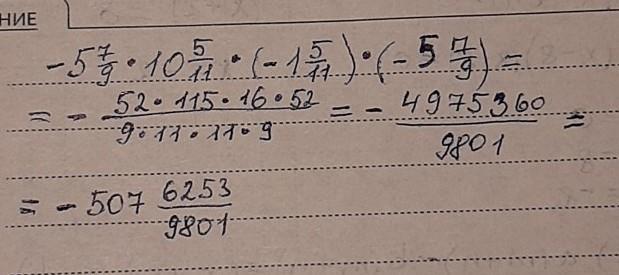 НИЕ
-5 7/9 · 10 5/11 · (-1 5/11) · (-5 7/9) =
= - 52·115·16·52 / 9·11·11·9 = - 4975360 / 9801 =
= - 507 6253/9801